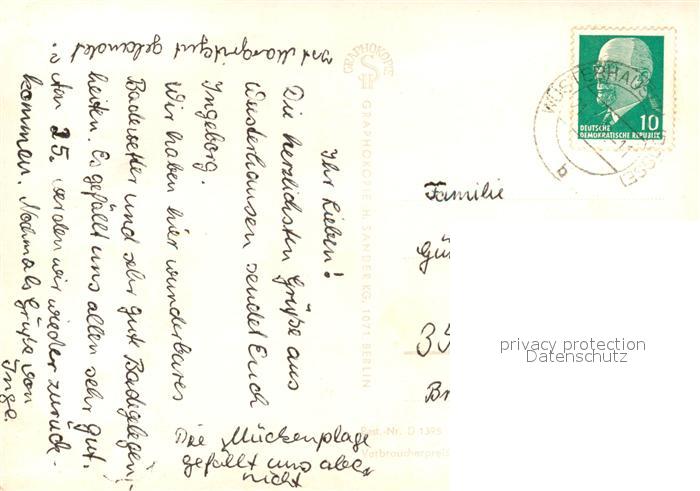 Ihr Lieben!
Die herzlichsten Grüße aus
Wusterhausen sendet Euch
Ingeborg.
Wir haben hier wunderbares
Badewetter und sehr gute Badegelegen-
heiten. Es gefällt uns allen sehr gut.
Am 25. werden wir wieder zurück-
kommen. Nochmals Grüße von
Inge.
Die Mückenplage
gefällt uns aber
nicht
Ist Margrit gut gelandet
?
GRAPHOKOPIE
GRAPHOKOPIE H. SANDER KG, 1071 BERLIN
Best.-Nr. D 1395
Verbraucherpreis
DEUTSCHE
DEMOKRATISCHE REPUBLIK
10
WUSTERHAU
b
Familie
Gü
35
Br
privacy protection
Datenschutz